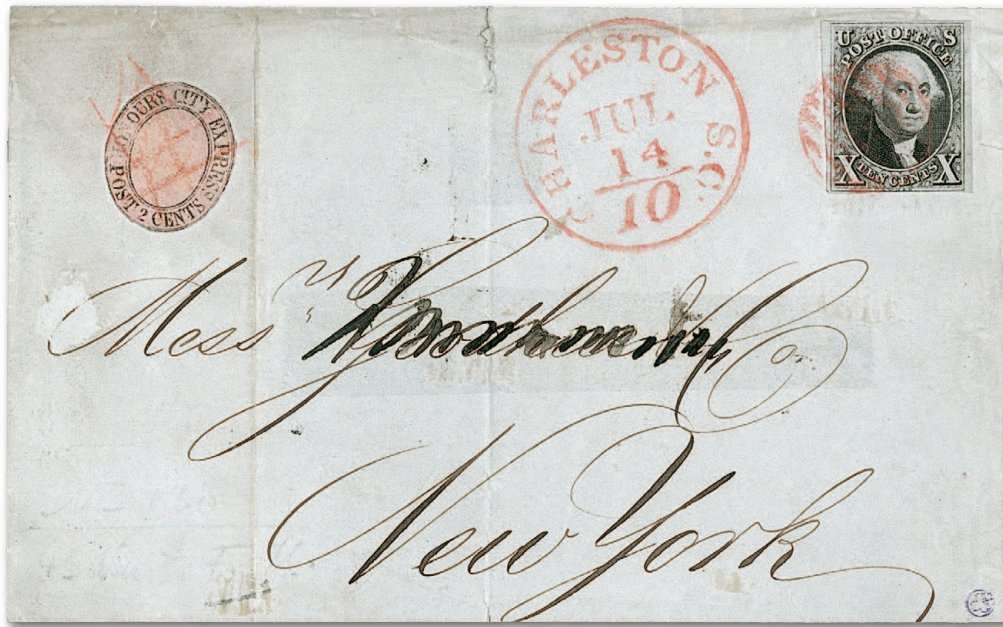 HONOURS CITY EXPRESS
POST 2 CENTS
CHARLESTON S.C.
JUL
14
10
U S
POST OFFICE
X TEN CENTS X
Mess rs & Co
New York